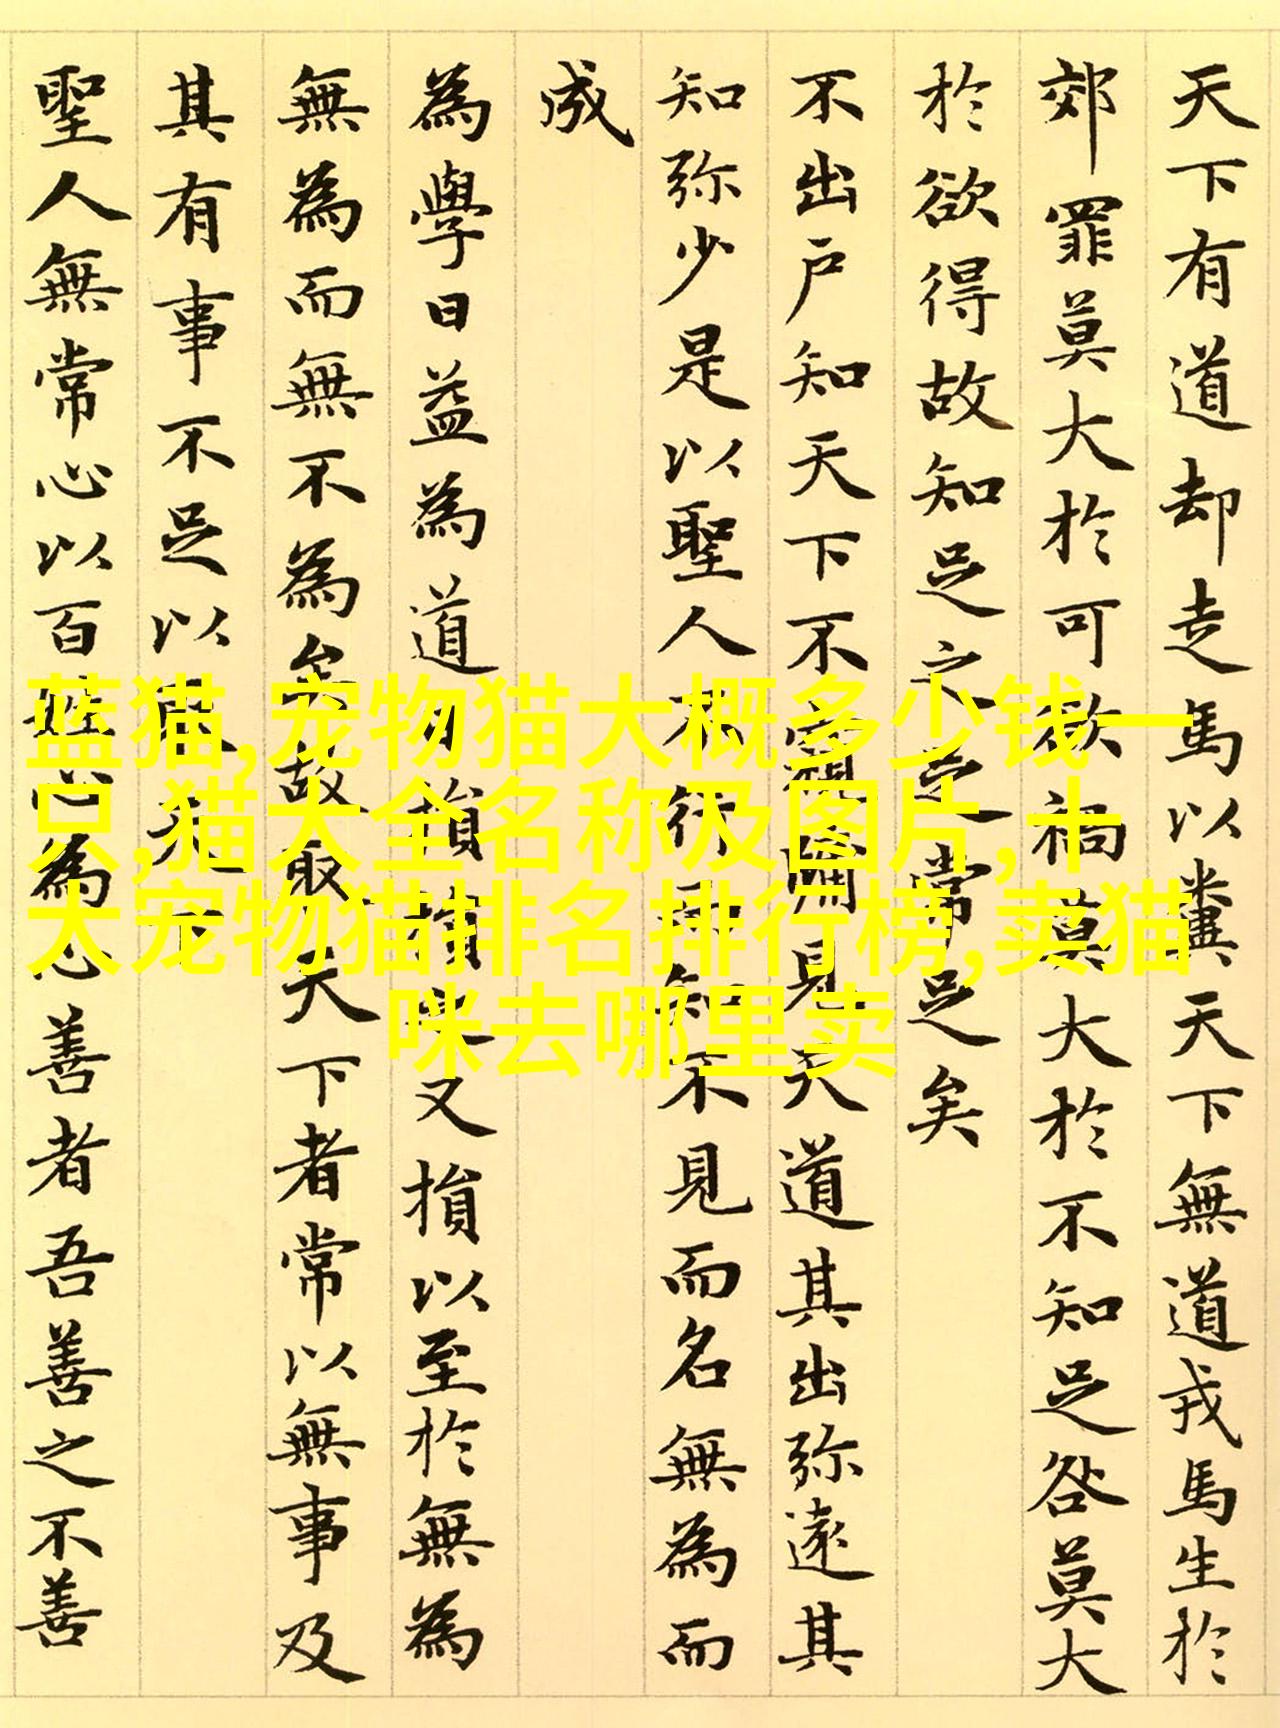 天下有道却走馬以糞天下無道戎馬生於
郊罪莫大於可欲禍莫大於不知足咎莫大
於欲得故知足之足常足矣
不出戶知天下不窺牖見天道其出弥遠其
知弥少是以聖人不行而知不見而名無為而
成
為學日益為道日損損之又損以至於無為
無為而無不為矣故取天下者常以無事及
其有事不足以取天下
聖人無常心以百姓心為心善者吾善之不善
蓝猫,宠物猫大概多少钱一
只,猫大全名称及图片,十
大宠物猫排名排行榜,卖猫
咪去哪里卖